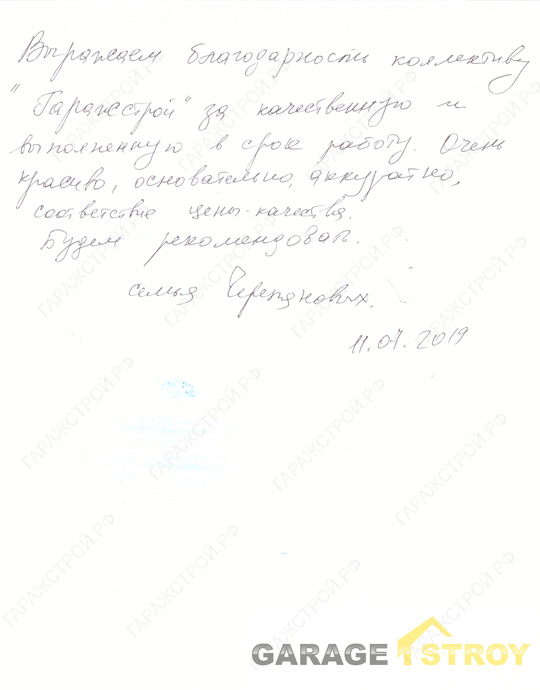 Выражаем благодарность коллективу
"Гаражстрой" за качественную и
выполненную в срок работу. Очень
красиво, основательно, аккуратно,
соответствие цены-качества.
Будем рекомендовать.
семья Черепановых.
11.07.2019
ГАРАЖСТРОЙ.РФ
GARAGE STROY